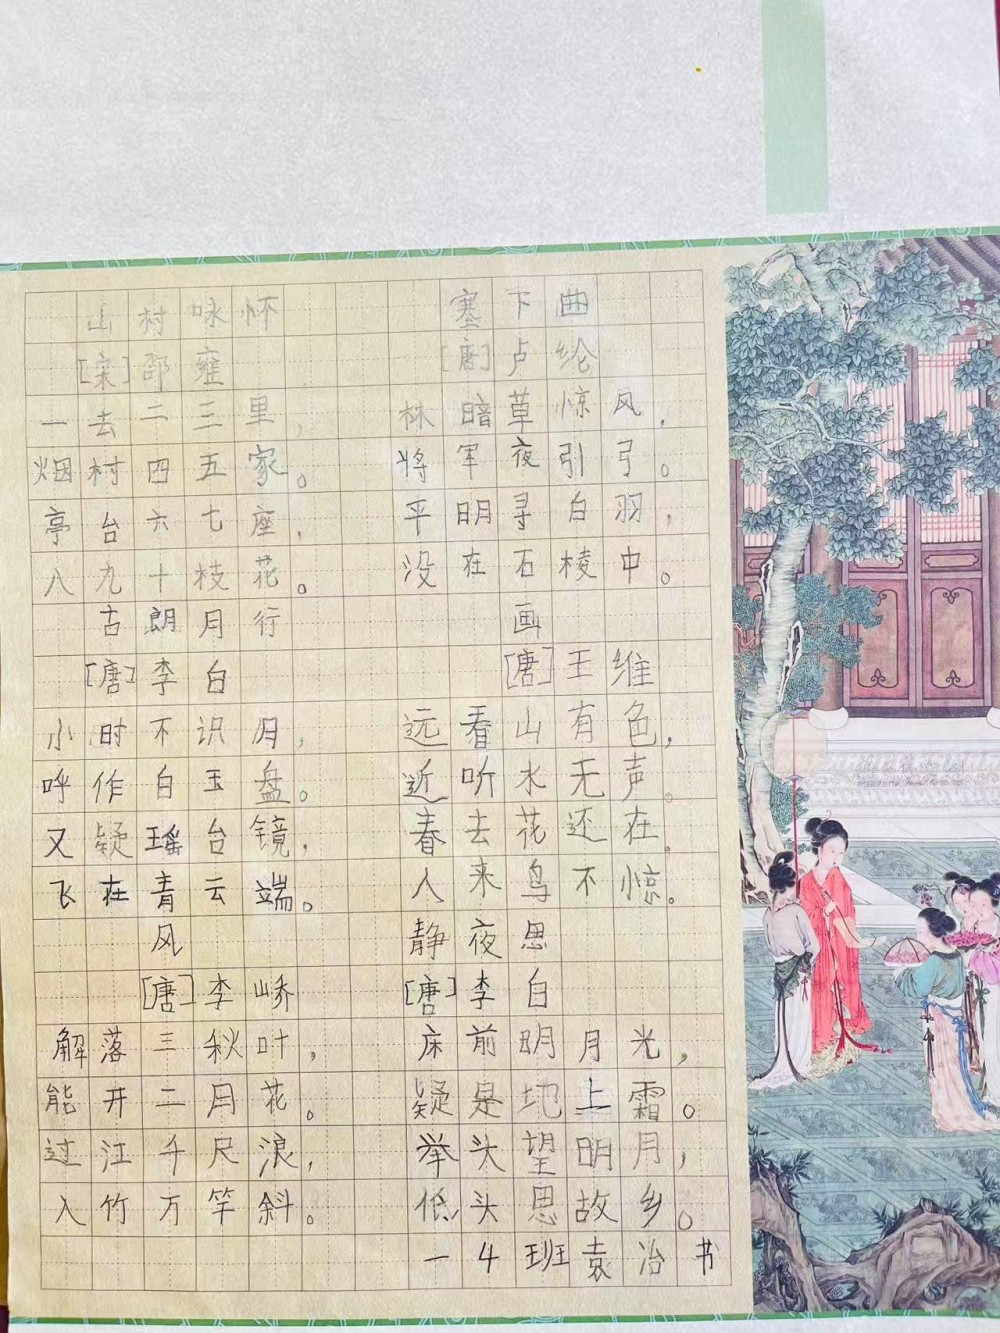 山村咏怀
[宋]邵雍
一去二三里，
烟村四五家。
亭台六七座，
八九十枝花。
古朗月行
[唐]李白
小时不识月，
呼作白玉盘。
又疑瑶台镜，
飞在青云端。
风
[唐]李峤
解落三秋叶，
能井二月花。
过江千尺浪，
入竹万竿斜。
塞下曲
[唐]卢纶
林暗草惊风，
将军夜引弓。
平明寻白羽，
没在石棱中。
画
[唐]王维
远看山有色，
近听水无声。
春去花还在，
人来鸟不惊。
静夜思
[唐]李白
床前明月光，
疑是地上霜。
举头望明月，
低头思故乡。
一4班袁冶书